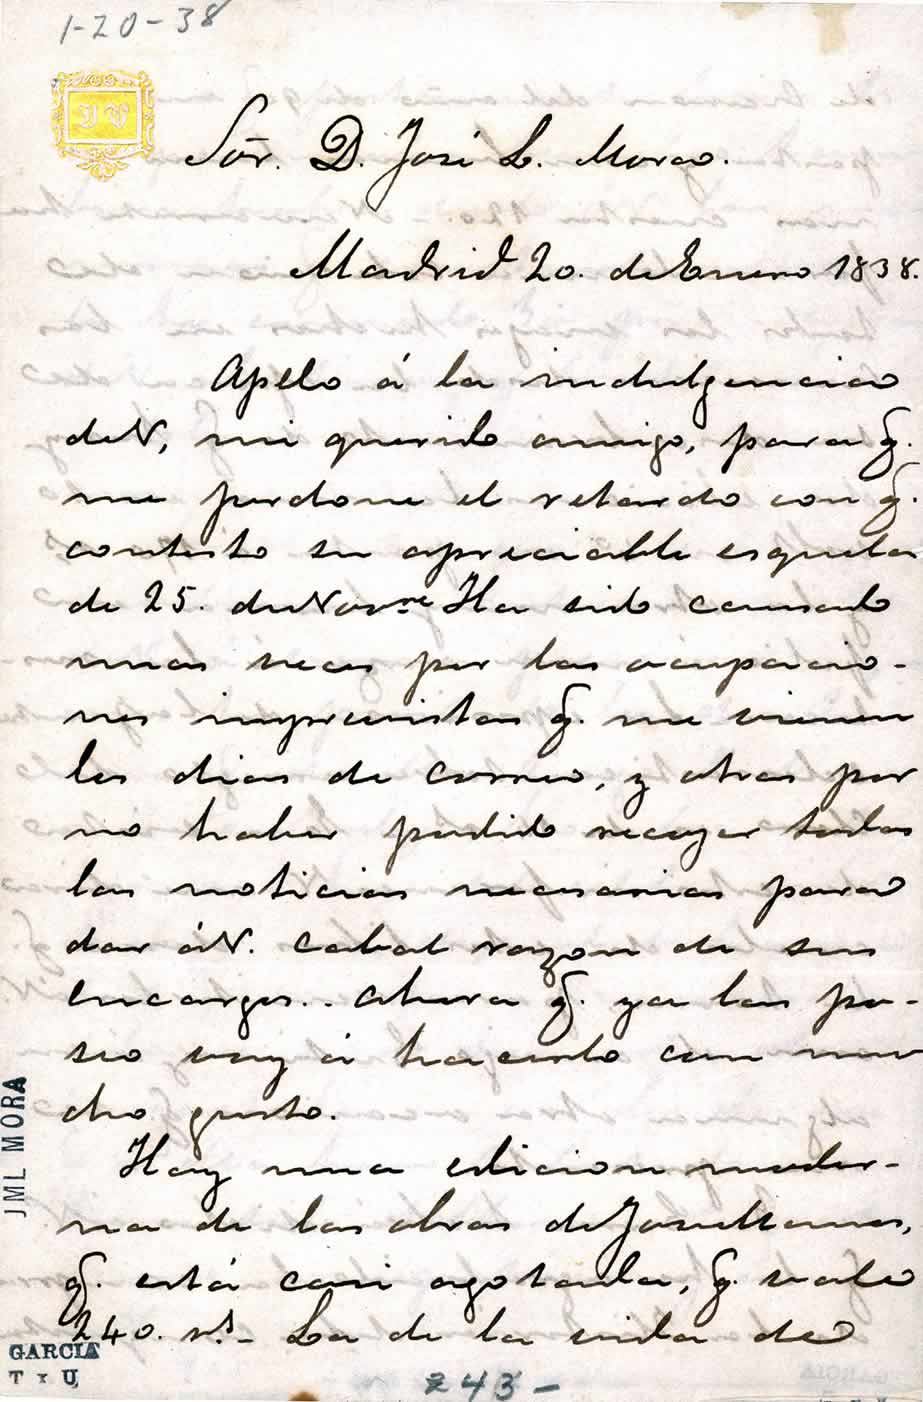 1-20-38
Sōr. D. José L. Mora.
Madrid 20. de Enero 1838.
Apelo á la indulgencia
de V, mi querido amigo, para q.
me perdone el retardo con q.
contesto su apreciable esquela
de 25. de Novre Ha sido causado
unas veces por las ocupacio-
nes imprevistas q. me vienen
los dias de correo, y otras por
no haber podido recoger todas
las noticias necesarias para
dar á V. cabal razon de sus
encargos.. Ahora q. ya las po-
seo voy á hacerlo con mu
cho gusto.
Hay una edicion moder-
na de las obras de Jovellanos,
q. está casi agotada, q. vale
240. rs. - La de la vida de
JML MORA
GARCIA
T Y U
243-